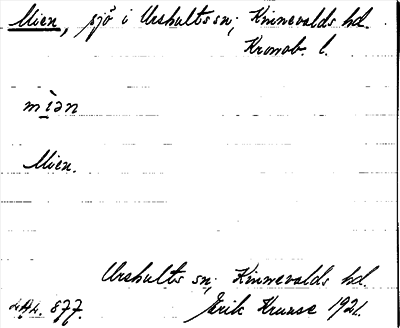 Mien, sjö i Urshults sn; Kinnevalds hd.
Kronob. l.
mìən
Mien.
Urshults sn; Kinnevalds hd.
877. Erik Kruuse 1921.